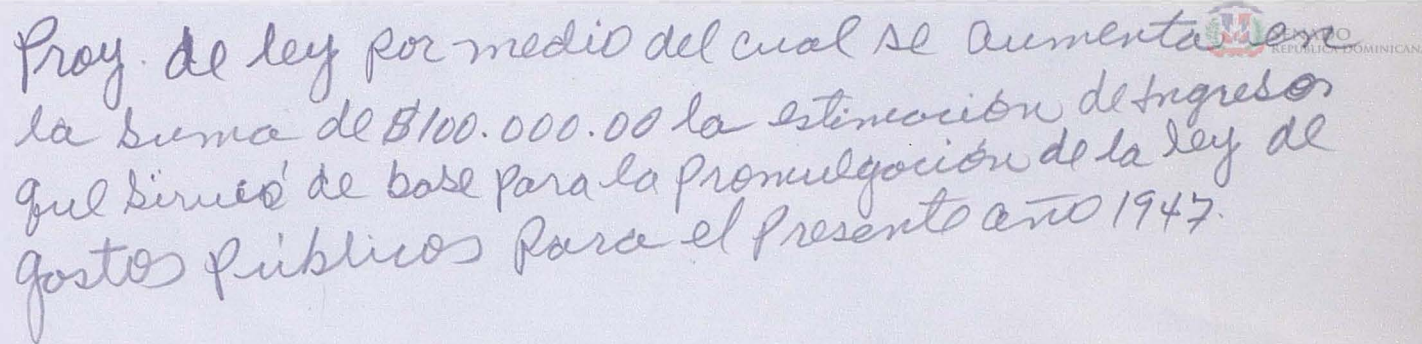 Proy. de ley por medio del cual se aumenta en
la suma de $100.000.00 la estimación de Ingresos
que sirvió de base para la promulgación de la ley de
gastos públicos para el presente año 1947.
SENADO
REPÚBLICA DOMINICANA